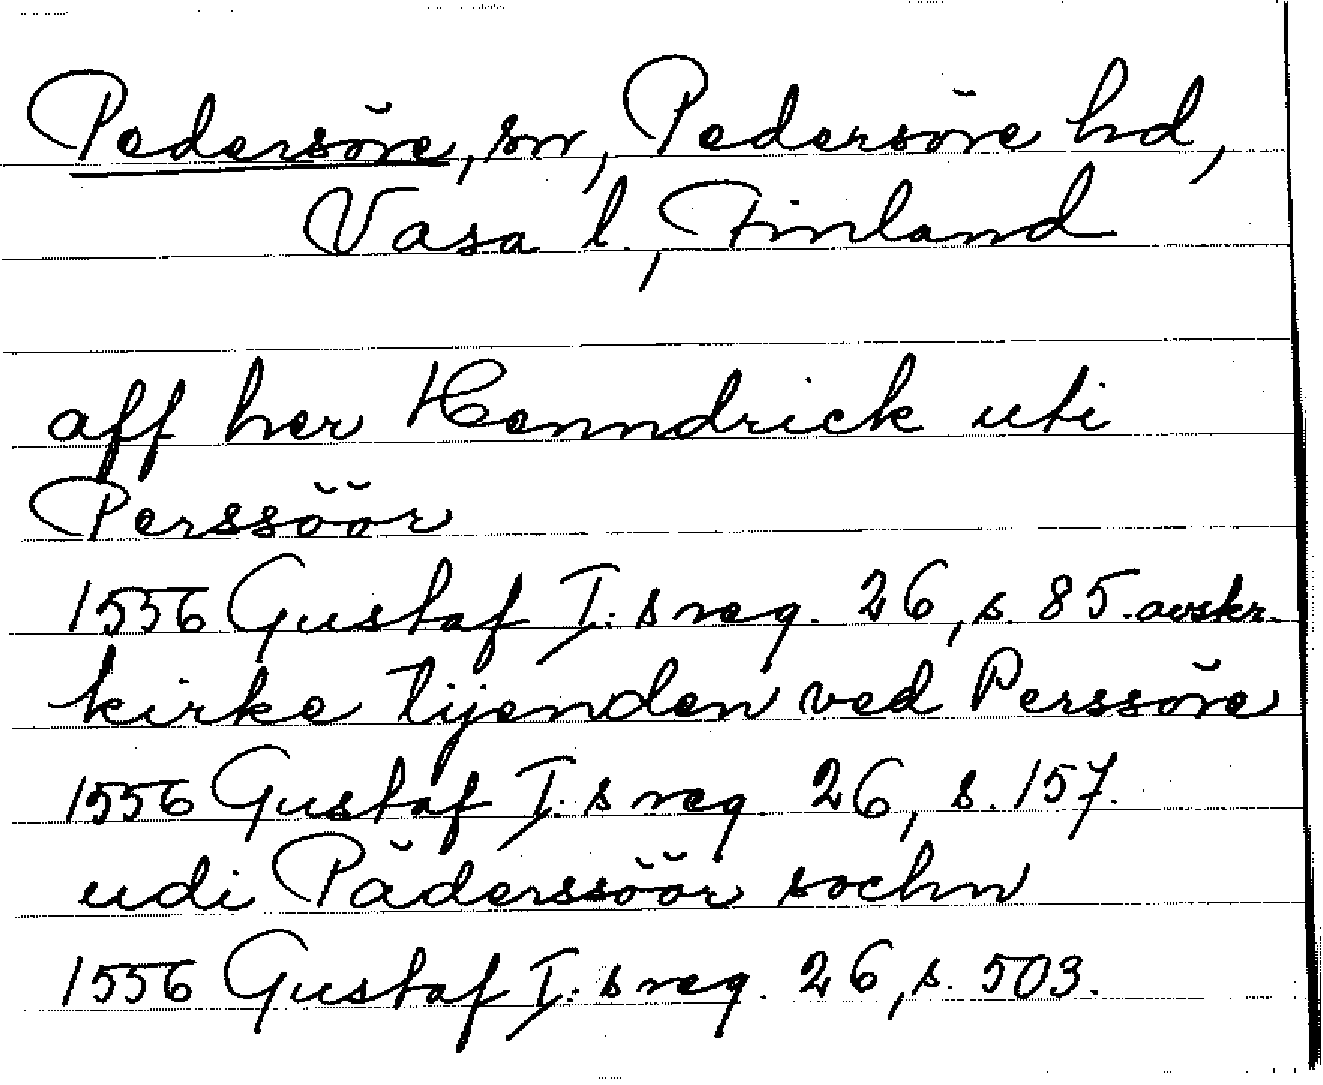 Pedersöre, sn, Pedersöre hd,
Vasa l., Finland
aff her Henndrick uti
Perssöör
1556 Gustaf I:s reg. 26, s. 85. avskr.
kirke tijenden ved Perssöre
1556 Gustaf I:s reg 26, s. 157.
udi Päderssöör sochn
1556 Gustaf I:s reg. 26, s. 503.